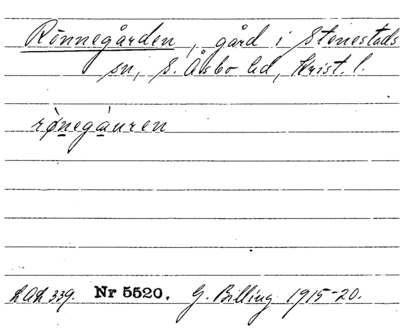 Rönnegården, gård i Stenestads
sn, S. Åsbo hd, Krist. l.
rønegàuren
LAL 339. Nr 5520. G. Billing 1915-20.